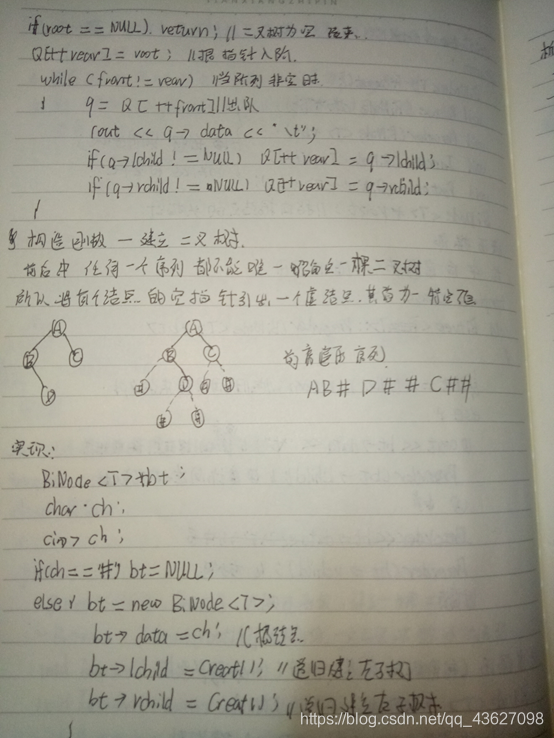 if(root == NULL) return; //二叉树为空 结束
Q[++rear] = root; //根指针入队
while (front != rear) //当队列非空时
{ q = Q[++front] //出队
cout << q→data << "\t";
if(q→lchild != NULL) Q[++rear] = q→lchild;
if(q→rchild != NULL) Q[++rear] = q→rchild;
}
构造函数—建立二叉树.
前后中 任何一个序列 都不能唯一确定一棵二叉树
所以 将每个结点 的空指针引出 一个虚结点. 其值为一特定值
A A
B C B C
D # D # #
# #
扩展 序列
AB#D##C##
实现:
BiNode<T>*bt;
char ch;
cin>>ch;
if(ch=='#') bt=NULL;
else{ bt=new BiNode<T>;
bt→data=ch; //根结点
bt→lchild = Creat(); //递归建立左子树
bt→rchild = Creat(); //递归建立右子树
}
https://blog.csdn.net/qq_43627098